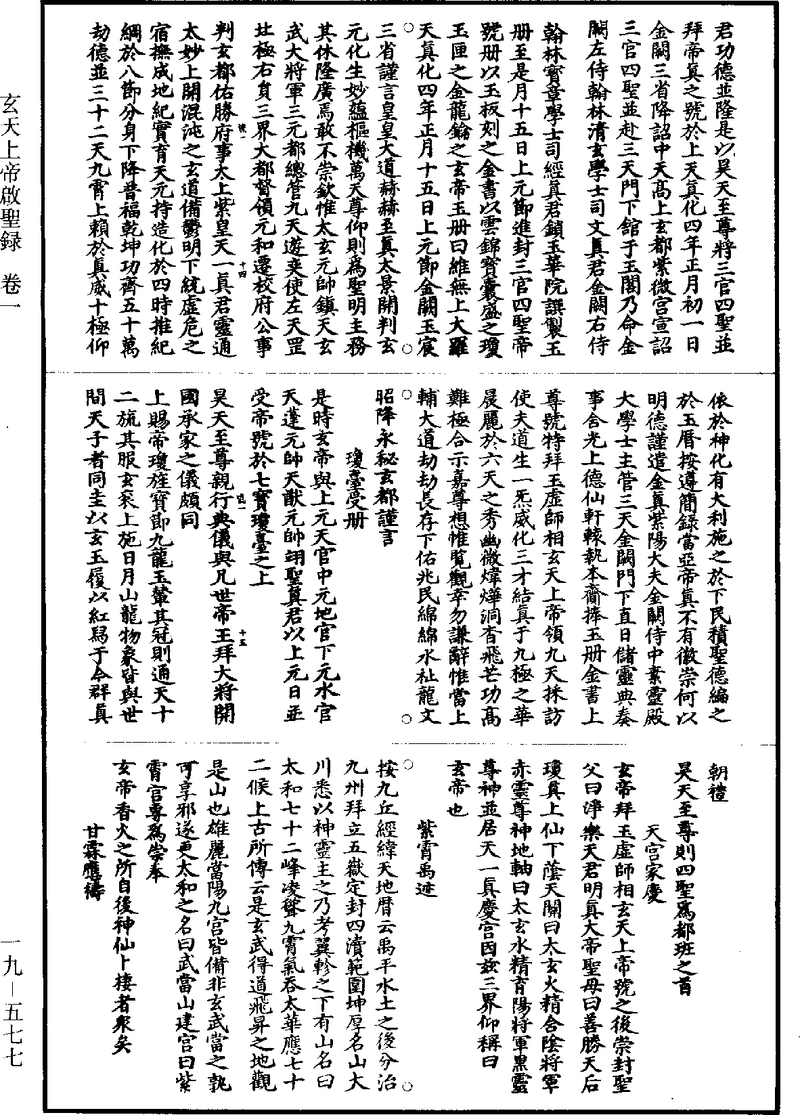 君功德並隆是以昊天至尊將三官四聖並
拜帝真之號於上天真化四年正月初一日
金闕三省降詔中天高上玄都紫微宮宣詔
三官四聖並赴三天門下舘于玉闇乃命金
闕左侍翰林清玄學士司文真君金闕右侍
翰林寳章學士司經真君鎖玉華院譔製玉
册至是月十五日上元節進封三官四聖帝
號册以玉板刻之金書以雲錦寳囊盛之瓊
玉匣之金龍鑰之玄帝玉册曰維無上大羅
天真化四年正月十五日上元節金闕玉宸
三省謹言皇皇大道赫赫至真太景開判玄
元化生妙蘊樞機萬天尊仰則爲聖明主務
其休隆廣焉敢不崇欽惟太玄元帥鎮天玄
武大將軍三元都總管九天遊奕使左天罡
北極右貟三界大都督領元和遷校府公事
判玄都佑勝府事太上紫皇天一真君靈通
太妙上開混沌之玄道備鬱明下統虛危之
宿撫成地紀實育天元持造化於四時推紀
綱於八節分身下降普福乾坤功齊五十萬
劫德並三十二天九霄上賴於真威十極仰
依於神化有大利施之於下民積聖德編之
於玉曆按遵簡錄當亞帝真不有徽崇何以
明德謹遣金真紫陽大夫金闕侍中素靈殿
大學士主管三天金闕門下直日儲靈典奏
事合光上德仙軒轅執本齎捧玉册金書上
尊號特拜玉虛師相玄天上帝領九天採訪
使夫道生一炁威化三才結真于九極之華
晨麗於六天之秀幽微煒燁洞杳飛芒功高
難極合示嘉尊想惟覧觀幸勿謙辭惟當上
輔大道劫劫長存下佑兆民綿綿水祉龍文
昭降永秘玄都謹言
瓊臺受册
是時玄帝與上元天官中元地官下元水官
天蓬元帥天猷元帥翊聖真君以上元日並
受帝號於七寳瓊臺之上
昊天至尊親行典儀與凡世帝王拜大將開
國承家之儀頗同
上賜帝瓊旌寳節九龍玉輦其冠則通天十
二旒其服玄衮上施日月山龍物象皆與世
間天子者同圭以玄玉履以紅舄于今群真
朝禮
昊天至尊則四聖爲都班之首
天宫家慶
玄帝拜玉虛師相玄天上帝號之後崇封聖
父曰淨樂天君明真大帝聖母曰善勝天后
瓊真上仙下蔭天關曰太玄火精含陰將軍
赤靈尊神地軸曰太玄水精育陽將軍黑靈
尊神並居天一真慶宮因兹三界仰稱曰
玄帝也
紫霄禹迹
按九丘經緯天地曆云禹平水土之後分治
九州拜立五嶽定封四瀆範圍坤厚名山大
川悉以神靈主之乃考翼軫之下有山名曰
太和七十二峰凌聳九霄氣吞太華應七十
二候上古所傳云是玄武得道飛昇之地觀
是山也雄麗當陽九宫皆備非玄武當之孰
可享邪遂更太和之名曰武當山建宫曰紫
霄宫專爲崇奉
玄帝香火之所自後神仙卜棲者衆矣
甘霖應禱
玄天上帝啟聖録 卷一
一九－五七七